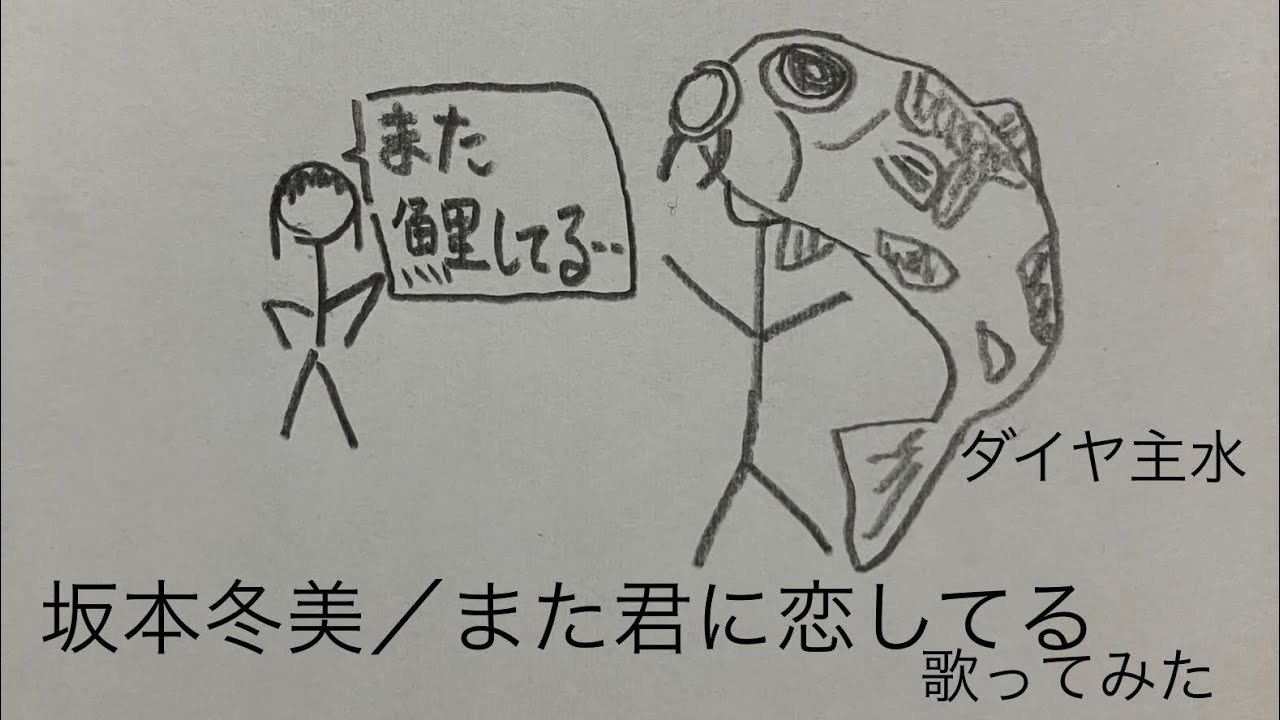 また
鯉してる‥
ダイヤ主水
坂本冬美／また君に恋してる
歌ってみた